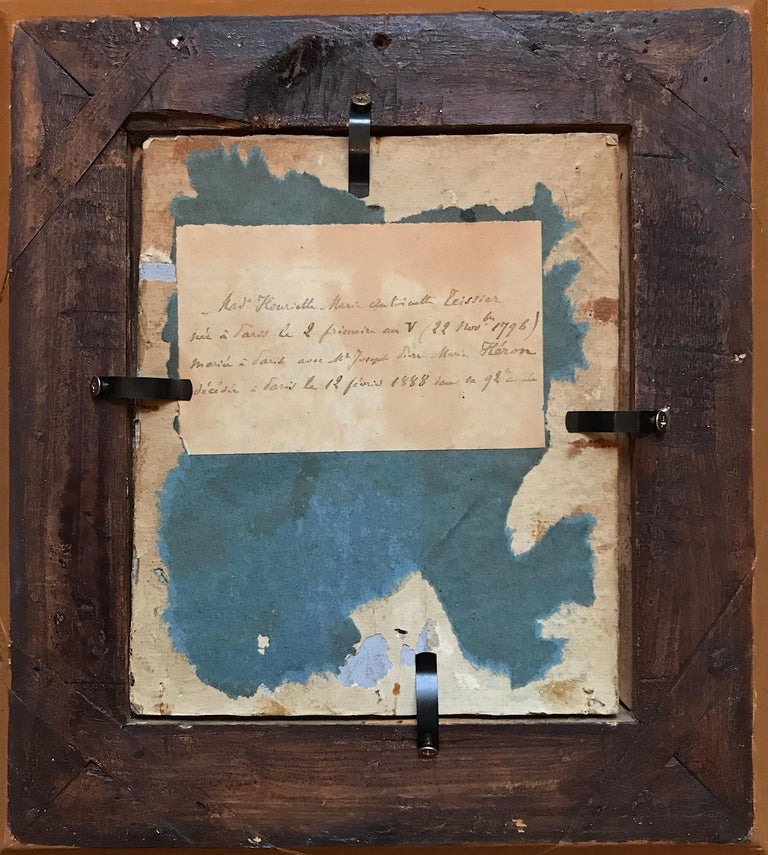 Mad.e Henriette Marie Antoinette Teissier
née à Paris le 2 frimaire an V (22 Novbre 1796)
mariée à Paris avec Mr Joseph Pierre Marie Héron
décédée à Paris le 12 février 1888 dans sa 92e année